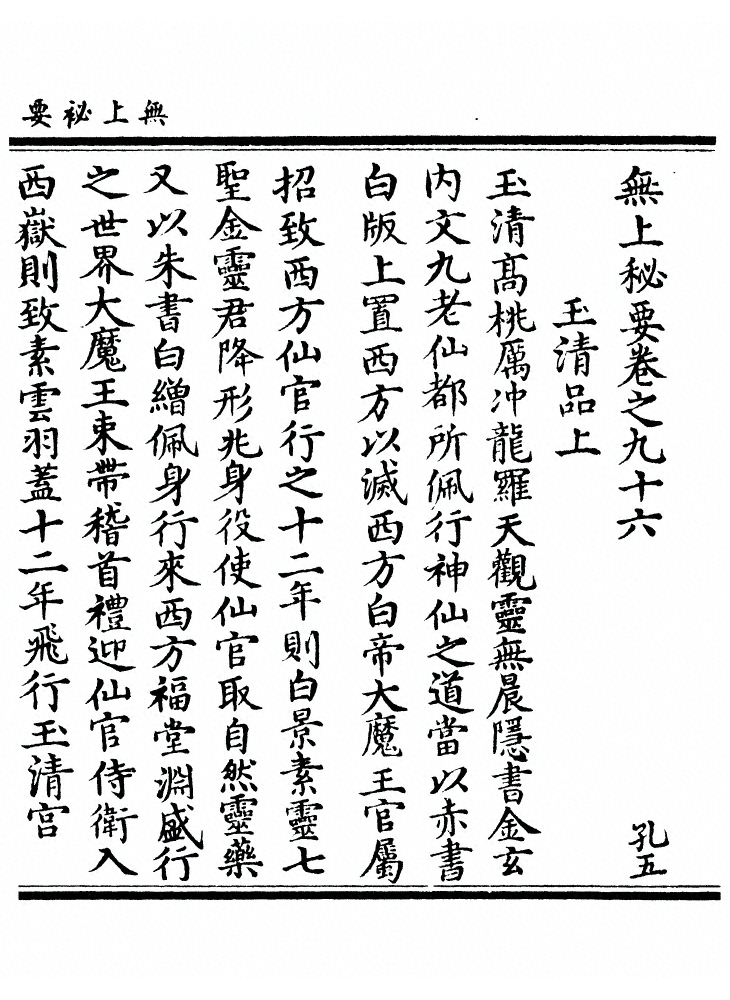 無上祕要
無上秘要卷之九十六 孔五
玉清品上
玉清高桃厲冲龍羅天觀靈無晨隱書金玄
内文九老仙都所佩行神仙之道當以赤書
白版上置西方以滅西方白帝大魔王官屬
招致西方仙官行之十二年則白景素靈七
聖金靈君降形兆身役使仙官取自然靈藥
又以朱書白繒佩身行來西方福堂淵盛行
之世界大魔王束帶稽首禮迎仙官侍衛入
西嶽則致素雲羽蓋十二年飛行玉清宫